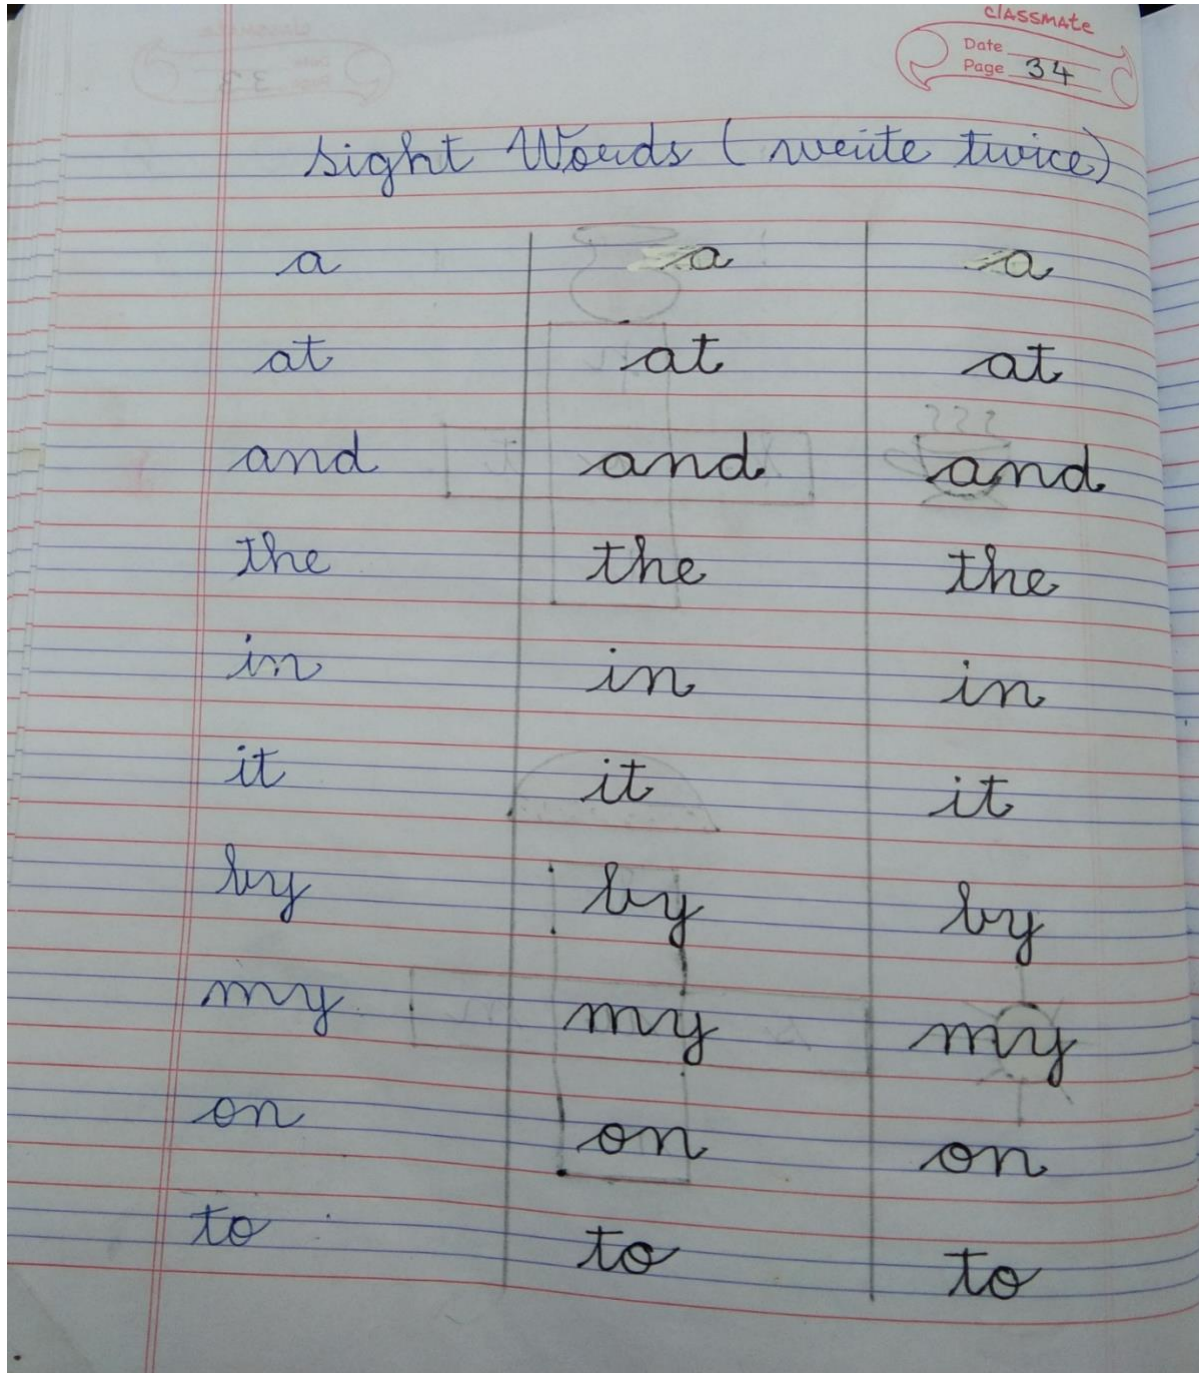 classmate
Date
Page 34
Sight Words (write twice)
a a a
at at at
and and and
the the the
in in in
it it it
by by by
my my my
on on on
to to to